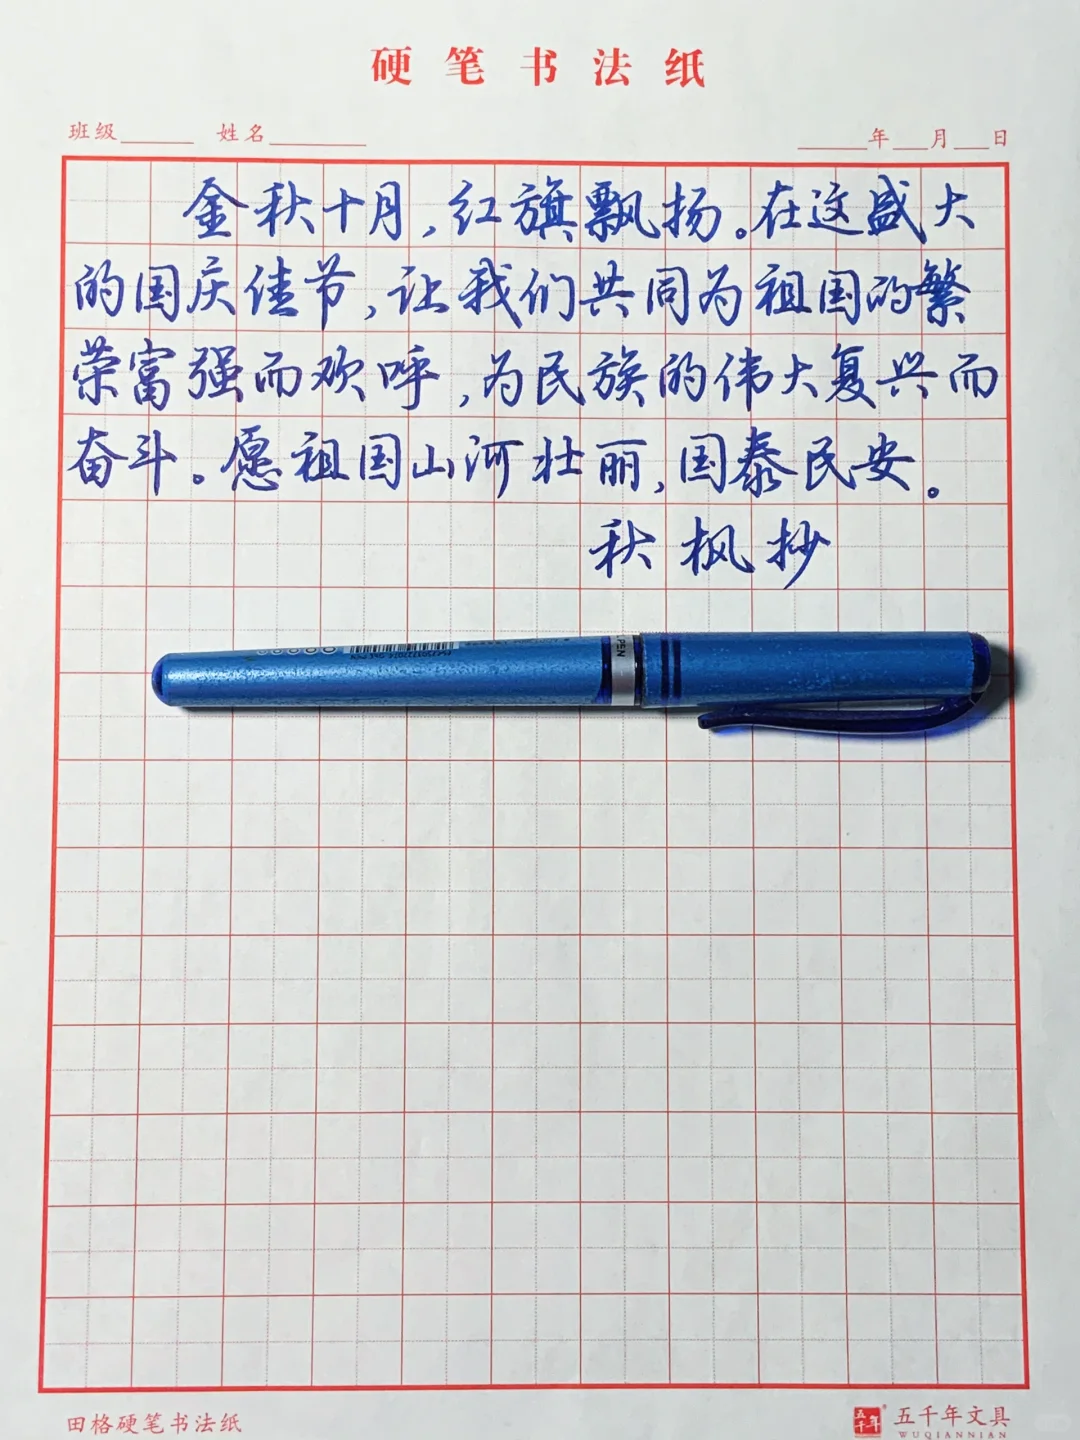 硬笔书法纸
班级 姓名 年 月 日
金秋十月,红旗飘扬。在这盛大
的国庆佳节,让我们共同为祖国的繁
荣富强而欢呼,为民族的伟大复兴而
奋斗。愿祖国山河壮丽,国泰民安。
秋枫抄
PEN
田格硬笔书法纸
五千年 五千年文具
WUQIANNIAN